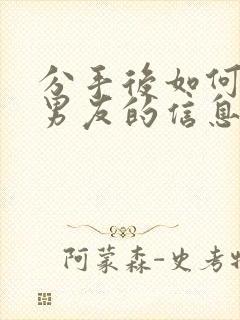 分手後如何
男友的信息
阿蒙森-史考特